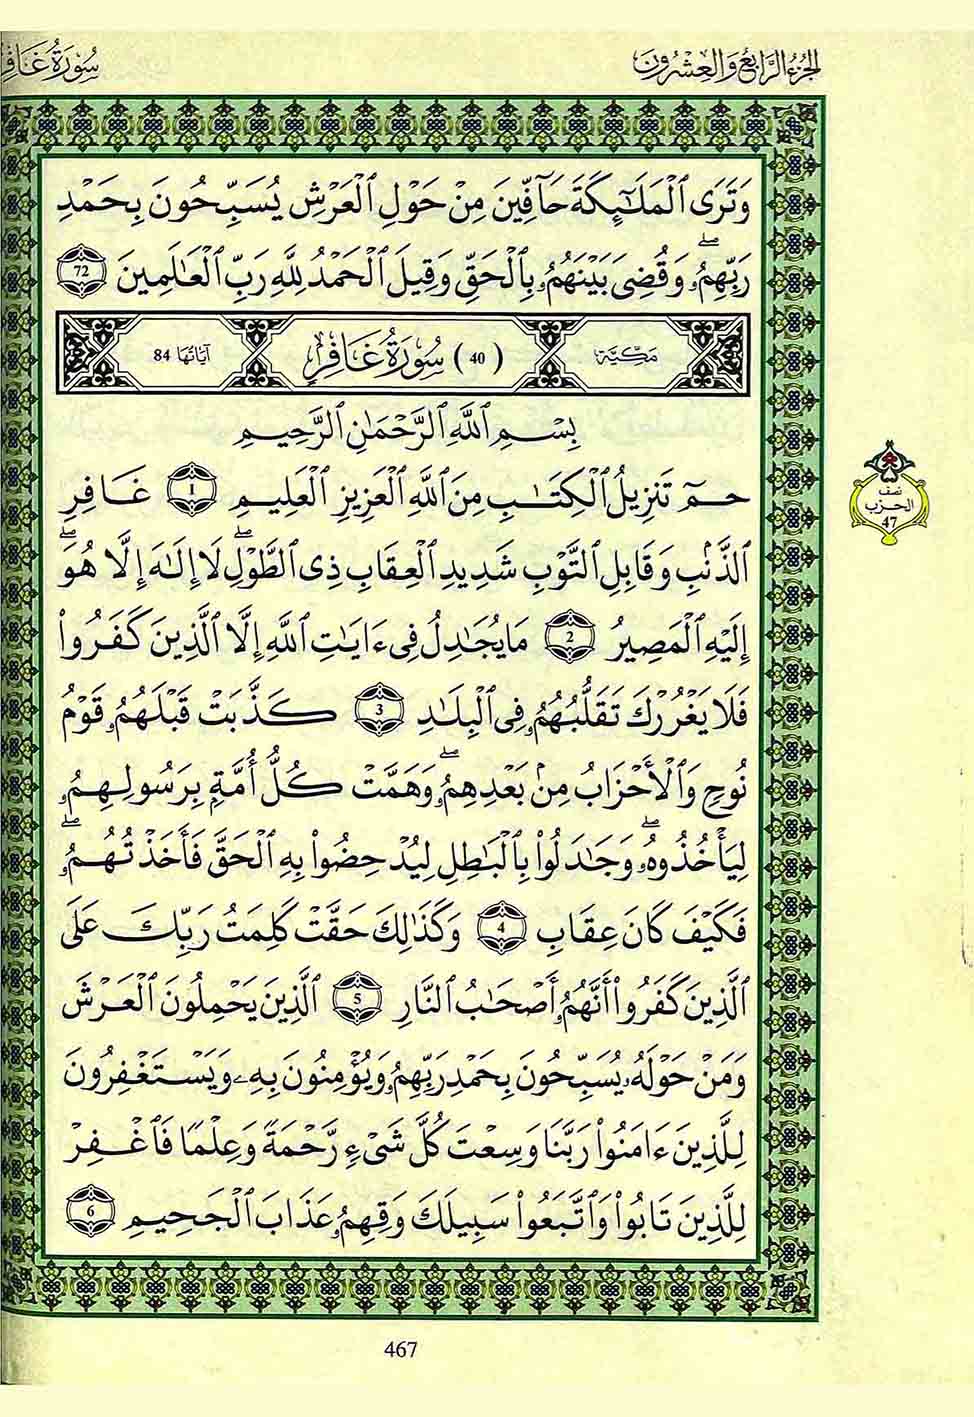 الجُزْءُ الرَّابِعُ وَالْعِشْرُونَ
سُورَةُ غَافِرٍ
وَتَرَى ٱلْمَلَٰٓئِكَةَ حَآفِّينَ مِنْ حَوْلِ ٱلْعَرْشِ يُسَبِّحُونَ بِحَمْدِ
رَبِّهِمُۥۖ وَقُضِىَ بَيْنَهُمُۥ بِالْحَقِّ وَقِيلَ ٱلْحَمْدُ لِلَّهِ رَبِّ ٱلْعَٰلَمِينَ 72
مَكِّيَّة
(40) سُورَةُ غَافِرٍ
آيَاتُهَا 84
بِسْمِ ٱللَّهِ ٱلرَّحْمَٰنِ ٱلرَّحِيمِ
حمٓ تَنزِيلُ ٱلْكِتَٰبِ مِنَ ٱللَّهِ ٱلْعَزِيزِ ٱلْعَلِيمِ 1 غَافِرِ
ٱلذَّنۢبِ وَقَابِلِ ٱلتَّوْبِ شَدِيدِ ٱلْعِقَابِ ذِى ٱلطَّوْلِۖ لَا إِلَٰهَ إِلَّا هُوَۖ
إِلَيْهِ ٱلْمَصِيرُ 2 مَا يُجَٰدِلُ فِى ءَايَٰتِ ٱللَّهِ إِلَّا ٱلَّذِينَ كَفَرُوا۟
فَلَا يَغْرُرْكَ تَقَلُّبُهُمُۥ فِى ٱلْبِلَٰدِ 3 كَذَّبَتْ قَبْلَهُمُۥ قَوْمُ
نُوحٍ وَٱلْأَحْزَابُ مِنۢ بَعْدِهِمُۥۖ وَهَمَّتْ كُلُّ أُمَّةٍۭ بِرَسُولِهِمُۥ
لِيَأْخُذُوهُۥۖ وَجَٰدَلُوا۟ بِالْبَٰطِلِ لِيُدْحِضُوا۟ بِهِ ٱلْحَقَّ فَأَخَذْتُهُمُۥۖ
فَكَيْفَ كَانَ عِقَابِ 4 وَكَذَٰلِكَ حَقَّتْ كَلِمَتُ رَبِّكَ عَلَى
ٱلَّذِينَ كَفَرُوا۟ أَنَّهُمُۥ أَصْحَٰبُ ٱلنَّارِ 5 ٱلَّذِينَ يَحْمِلُونَ ٱلْعَرْشَ
وَمَنْ حَوْلَهُۥ يُسَبِّحُونَ بِحَمْدِ رَبِّهِمُۥ وَيُؤْمِنُونَ بِهِۦ وَيَسْتَغْفِرُونَ
لِلَّذِينَ ءَامَنُوا۟ رَبَّنَا وَسِعْتَ كُلَّ شَىْءٍ رَّحْمَةً وَعِلْمًا فَٱغْفِرْ
لِلَّذِينَ تَابُوا۟ وَٱتَّبَعُوا۟ سَبِيلَكَ وَقِهِمُۥ عَذَابَ ٱلْجَحِيمِ 6
نصف
الحزب
47
467